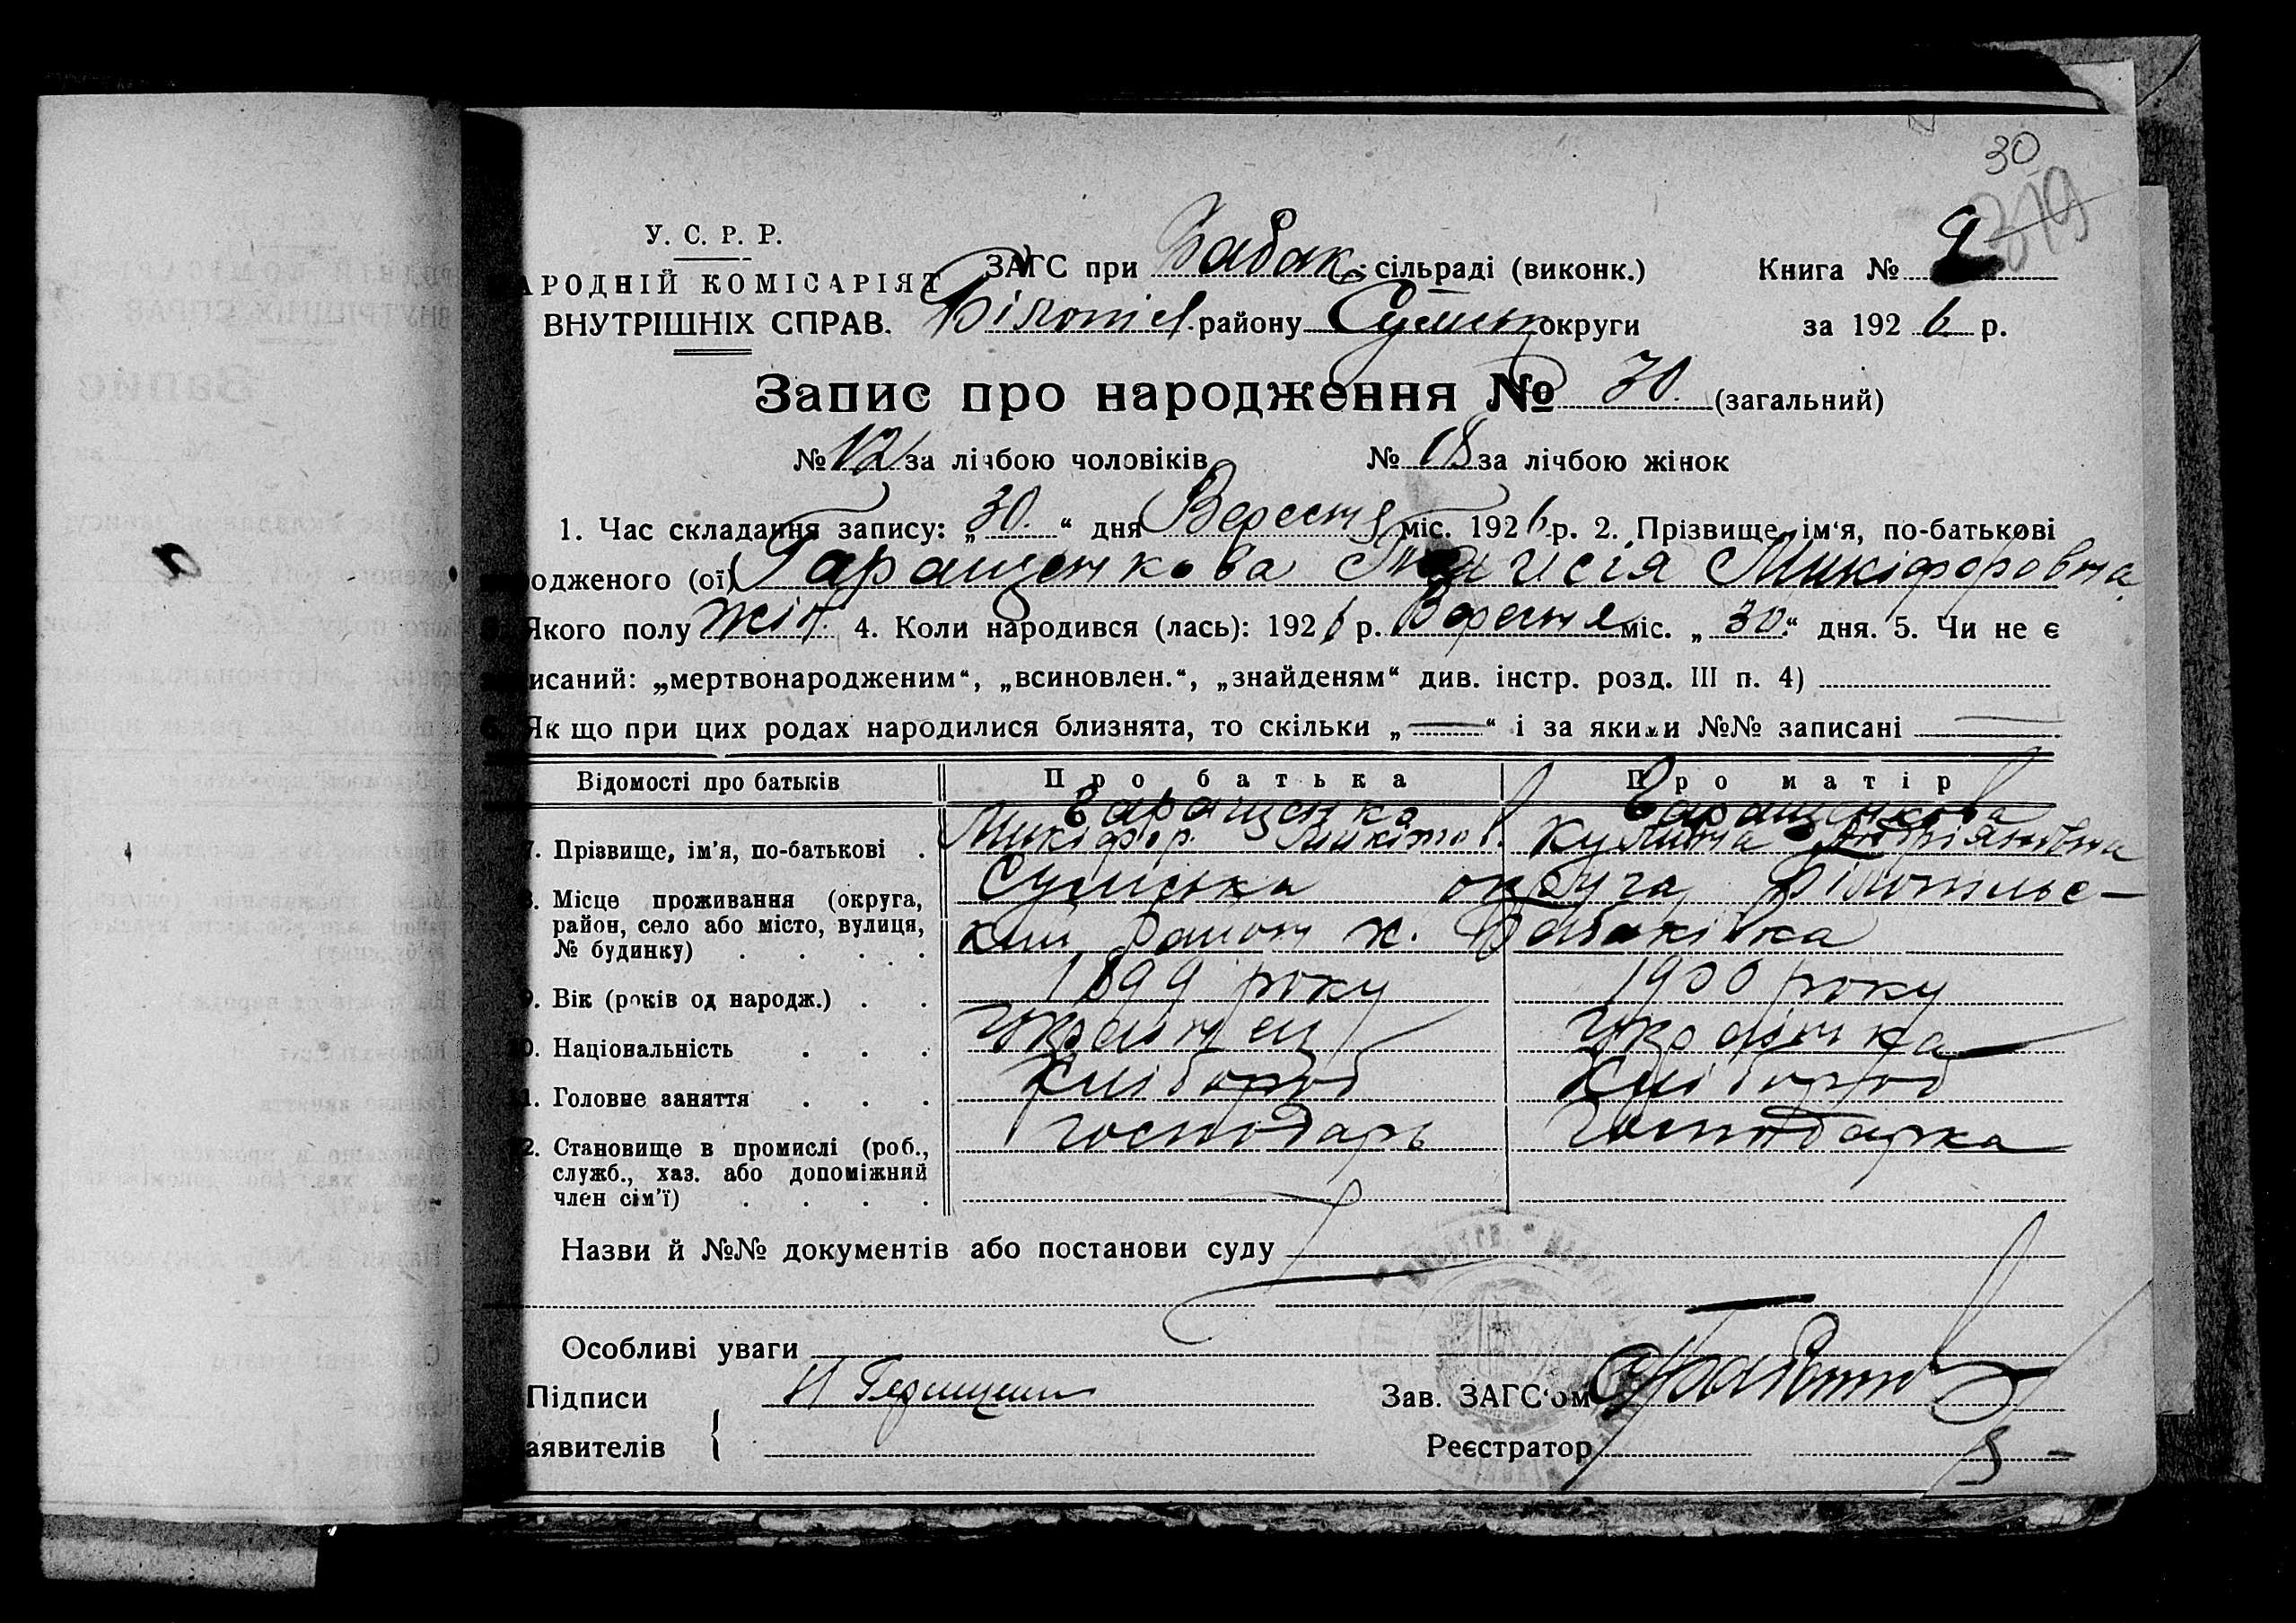 30
319
У. С. Р. Р.
НАРОДНІЙ КОМІСАРІЯТ
ВНУТРІШНІХ СПРАВ.
ЗАГС при Бабак. сільраді (виконк.)
Книга № 2
Білопіл. району Сумськ округи
за 1926 р.
Запис про народження № 30. (загальний)
№ 12 за лічбою чоловіків
№ 18 за лічбою жінок
1. Час складання запису: „30.“ дня Вересня міс. 1926 р. 2. Прізвище, ім‘я, по-батькові
одженого (ої) Гаращенкова Таїсія Микіфоровна
Якого полу жін. 4. Коли народився (лась): 1926 р. Вересня міс. „30.“ дня. 5. Чи не є
исаний: „мертвонародженим“, „всиновлен.“, „знайденям“ див. інстр. розд. III п. 4)
6. Як що при цих родах народилися близнята, то скільки „—“ і за якими №№ записані —
Відомості про батьків
Про батька
Про матір
7. Прізвище, ім‘я, по-батькові
Гаращенко
Микіфор Микітов.
Гаращенкова
Кулина Андріяновна
8. Місце проживання (округа,
район, село або місто, вулиця,
№ будинку)
Сумська округа, Білопільс-
кий район х. Бабаківка
9. Вік (років од народж.)
1899 року
1900 року
10. Національність
Украінец
Украінка
11. Головне заняття
Хлібороб
Хлібороб
12. Становище в промислі (роб.,
служб., хаз. або допоміжний
член сім‘ї)
господарь
господарка
Назви й №№ документів або постанови суду
Особливі уваги
Підписи
аявителів
Зав. ЗАГС‘ом
Реєстратор